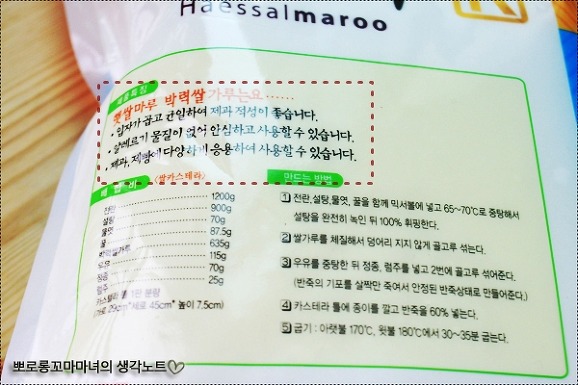 Haessalmaroo
제품특징
햇쌀마루 박력쌀가루는요......
• 입자가 곱고 균일하여 제과 적성이 좋습니다.
• 알레르기 물질이 없어 안심하고 사용할 수 있습니다.
• 제과, 제빵에 다양하게 응용하여 사용할 수 있습니다.
배 합 비 <쌀카스테라>
전란 1200g
설탕 900g
물엿 70g
꿀 87.5g
박력쌀가루 635g
우유 115g
정종 70g
럼주 25g
카스테라 틀 1판 분량
(가로 29cm*세로 45cm* 높이 7.5cm)
만드는 방법
1 전란,설탕,물엿, 꿀을 함께 믹서볼에 넣고 65~70℃로 중탕해서
설탕을 완전히 녹인 뒤 100% 휘핑한다.
2 쌀가루를 체질해서 덩어리 지지 않게 골고루 섞는다.
3 우유를 중탕한 뒤 정종, 럼주를 넣고 2번에 골고루 섞어준다.
(반죽의 기포를 살짝만 죽여서 안정된 반죽상태로 만들어준다.)
4 카스테라 틀에 종이를 깔고 반죽을 60% 넣는다.
5 굽기 : 아랫불 170℃, 윗불 180℃에서 30~35분 굽는다.
뽀로롱꼬마마녀의 생각노트